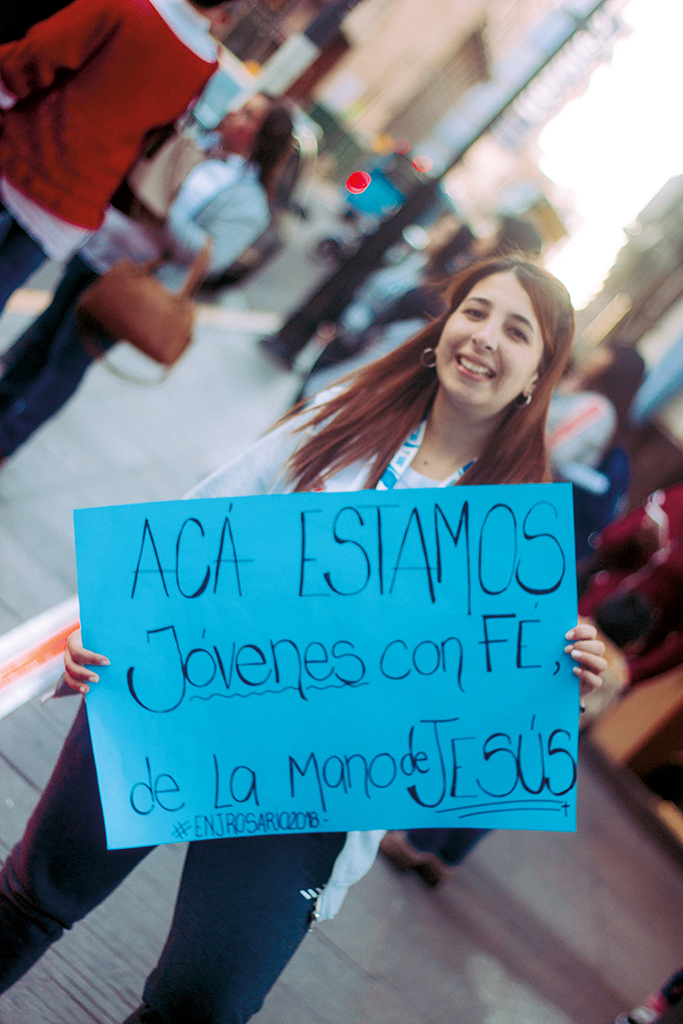 ACÁ ESTAMOS
Jóvenes con FÉ,
de La Mano de JESÚS
#ENJROSARIO2018.-